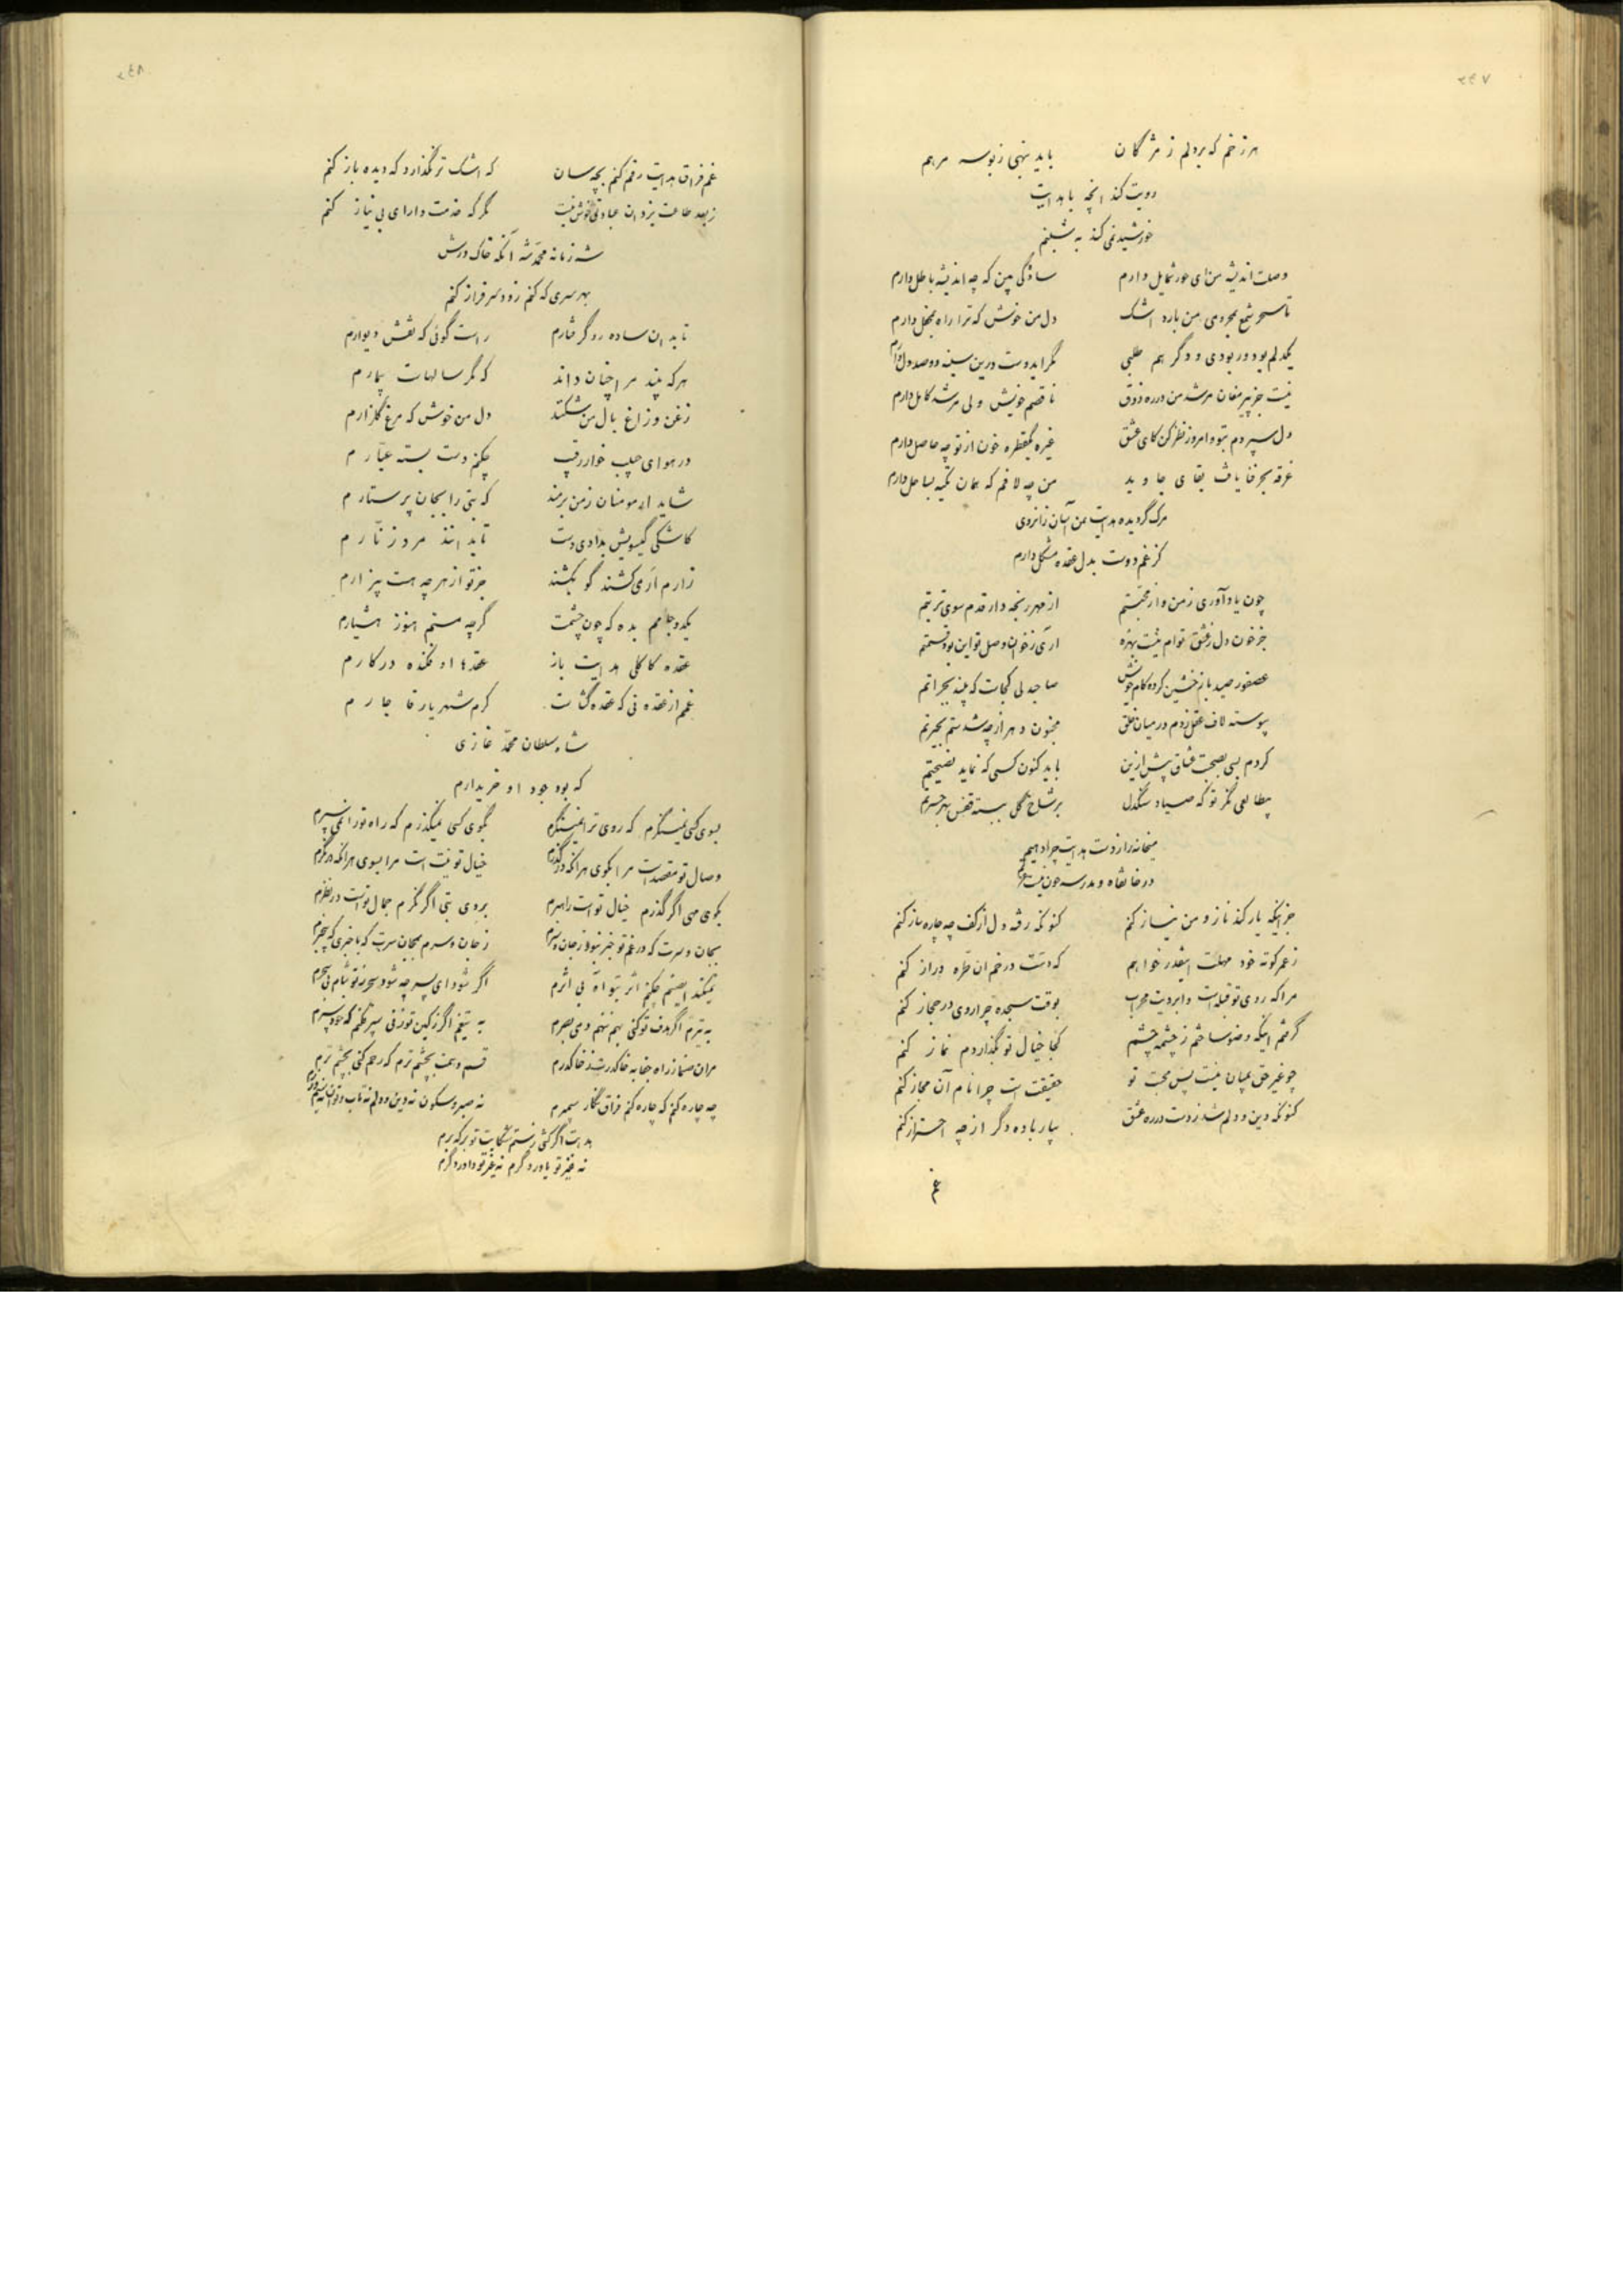 هر زخم که بر دلم ز مژگان باید بنهی ز بوسه مرهم
رویت کند آنچه با هدایت
خورشید نمی کند به شبنم
وصلت اندیشه من ای حور شمایل دارم سادگی بین که چه اندیشه باطل دارم
تا سحر شمع بمحرومی من بارد اشک دل من خوش که ترا راه بمحفل دارم
یکدلم بود و ربودی و دگر هم طلبی مگر ایدوست درین سینه دوصد دل دارم
نیست جز پیر مغان مرشد من در ره ذوق ناقصم خویش ولی مرشد کامل دارم
دل سپردم بتو و امروز نظر کن کای عشق غیر یکقطره خون از تو چه حاصل دارم
غرقه بحر فنا یافت بقای جاوید من چه لافم که همان تکیه بساحل دارم
مرگ گردیده هدایت بمن آسان زانروی
کز غم دوست بدل عقده مشکل دارم
چون یاد آوری ز من و از محبتم از مهر رنجه دار قدم سوی تربتم
جز خون دل ز عشق توام نیست بهره آری ز خوان وصل تو این بود قسمتم
عصفور صید باز خشین کرده کام خویش صاحبدلی کجاست که بیند بجراتم
پیوسته لاف عقل زدم در میان خلق مجنون دهر از چه شدستم بحیرتم
کردم بسی نصیحت عشاق پیش ازین باید کنون کسی که نماید نصیحتم
بیطالعی نگر تو که صیاد سنگدل بر شاخ گل ببسته قفس بهر حسرتم
میخانه را ز دست هدایت چرا دهیم
در خانقاه و مدرسه چون نیست حرمتم
جز اینکه یار کند ناز و من نیاز کنم کنونکه رفته دل از کف چه چاره ساز کنم
ز عمر کوته خود مهلت اینقدر خواهم که دست در خم آن طره دراز کنم
مرا که روی تو قبله است و ابرویت محراب بوقت سجده چرا روی در حجاز کنم
گرفتم اینکه وضو ساختم ز چشمه چشم کجا خیال تو بگذاردم نماز کنم
چو غیر حق بمیان نیست پس محبت تو حقیقت است چرا نام آن مجاز کنم
کنونکه دین و دلم شد ز دست در ره عشق بیار باده دگر از چه احتراز کنم
غم
غم فراق هدایت رقم کنم بچه سان که اشک تر نگذارد که دیده باز کنم
ز بعد طاعت یزدان عبادتی خوش نیست مگر که خدمت دارای بی نیاز کنم
شه زمانه محمد شه آنکه خاک درش
بهر سری که کنم زود سرفراز کنم
تا بدان ساده رو گرفتارم راست گوئی که نقش دیوارم
هر که بیند مرا چنان داند که مگر سالهاست بیمارم
زغن و زاغ بال من شکنند دل من خوش که مرغ گلزارم
در هوای حبیب خوار رقیب چکنم دست بسته عیارم
شاید ار مومنان ز من برمند که بتی را بجان پرستارم
کاشکی گیسویش بدادی دست تا بدانند مرد زنارم
زارم ار میکشند گو بکشند جز تو از هر چه هست بیزارم
یکدو جامم بده که چون چشمت گرچه مستم هنوز هشیارم
عقده کاکلی هدایت باز عقدها افکنده در کارم
غمم از عقده نی که عقده گشاست کرم شهریار قاجارم
شاه سلطان محمد غازی
که بود جود او خریدارم
بسوی کس نمینگرم که روی ترا نمینگرم بکوی کسی نمیگذرم که راه تو را نمی سپرم
وصال تو مقصد است مرا بکوی هر آنکه در گذرم خیال تو نیت است مرا بسوی هر آنکه در نگرم
بکوی مهی اگر گذرم خیال تو است راهبرم بروی بتی اگر نگرم جمال تو است در نظرم
بجان و سرت که در غم تو خبر نبود ز جان و سرم ز جان و سرم بجان سرت که باخبری که بیخبرم
نمیکند ای صنم چکنم اثر بتو آه بی اثرم اگر شود ای پسر چه شود سحر ز تو شام بی سحرم
به تیرم اگر هدف تو کنی بهم ننهم دمی بصرم به تیغم اگر ز کین تو زنی سپر فکنم که جود سپرم
مران صنما ز راه جفا به خاک درت خاک درم قسم دهمت بچشم ترم که رحم کنی بچشم ترم
چه چاره کنم که چاره کنم فراق نگار سیمبرم نه صبر و سکون نه دین و دلم نه تاب و توان نه سیم و زرم
هدایت اگر کشی ز ستم شکایت تو بر که برم
نه غیر تو یاور دگرم نه غیر تو داور دگرم